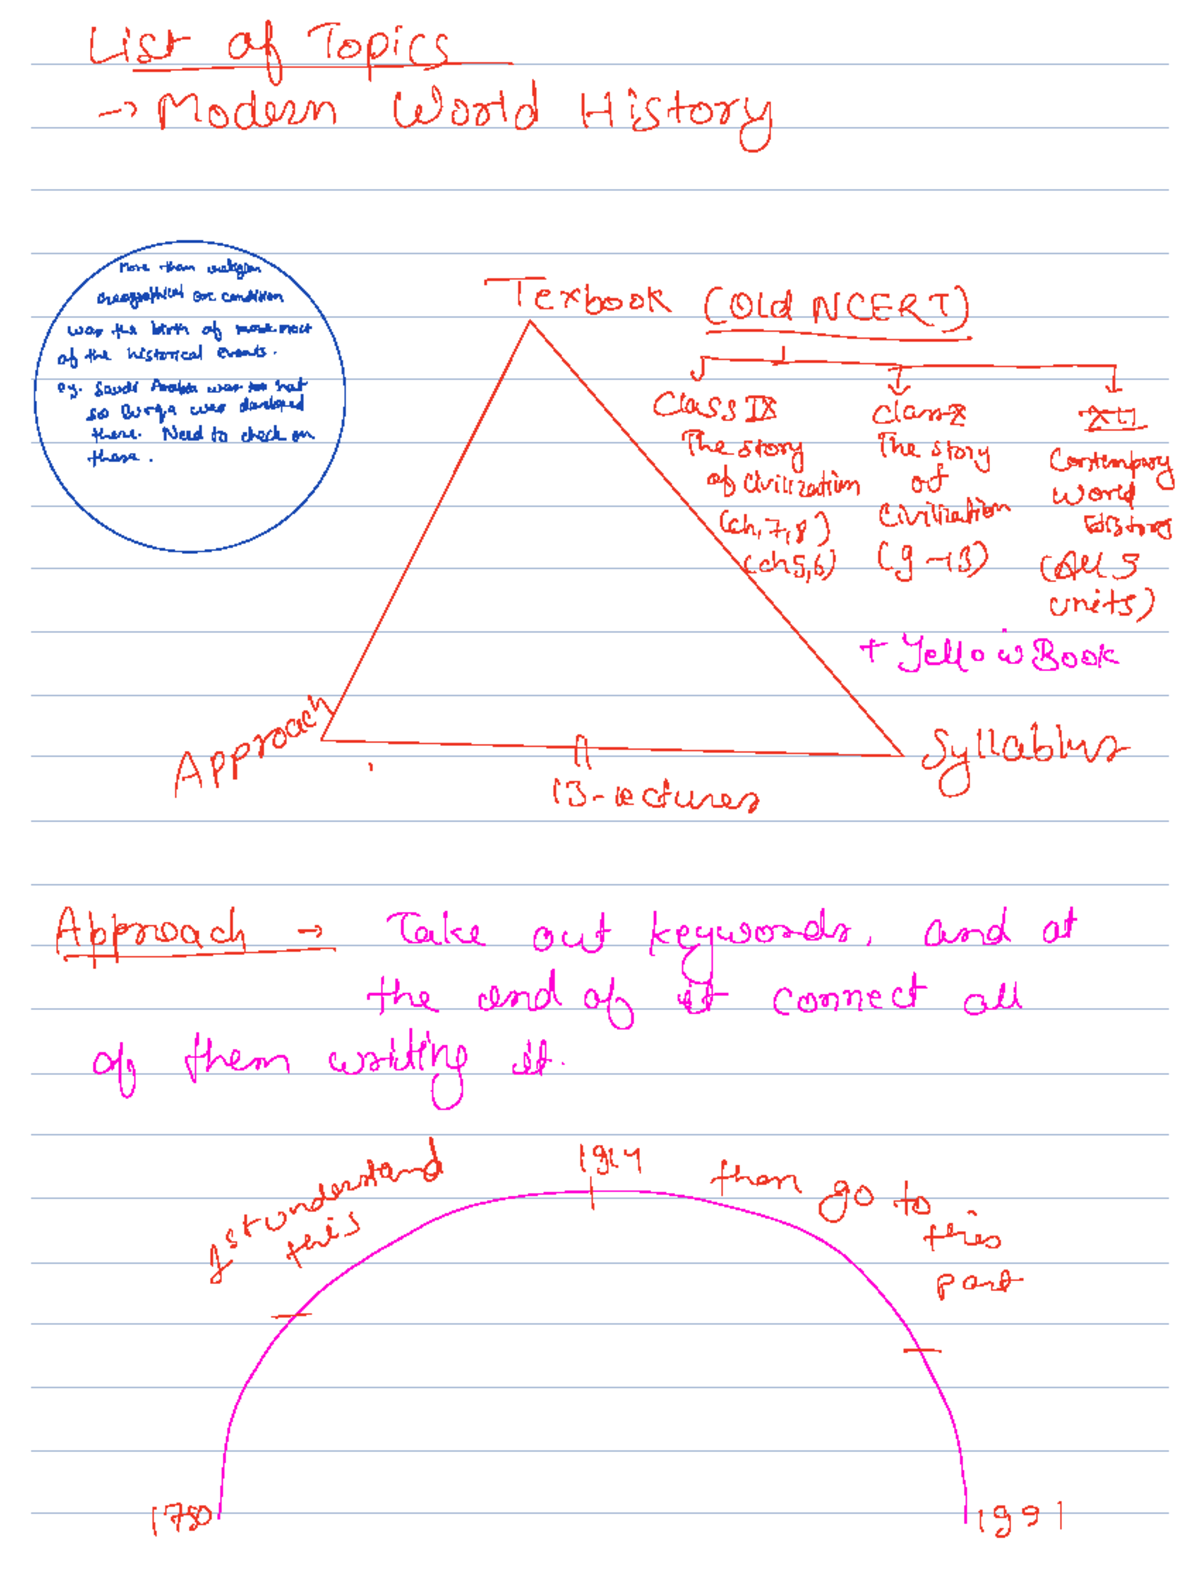 List of Topics
→ Modern World History
More than religion
Geographical condition
was the birth of most
of the historical events.
eg. Saudi Arabia was too hot
so Burqa was developed
there. Need to check on
these.
Texbook (Old NCERT)
Class IX
The story
of civilization
(ch, 7, 8)
(ch 5, 6)
Class X
The story
of
Civilization
(9-13)
XII
Contempary
World
History
(All 5
units)
+ Yellow Book
Approach
Syllablus
13-lectures
Approach → Take out keywords, and at
the end of it connect all
of them writing it.
1st understand
this
1914
then go to
this
part
1750
1991